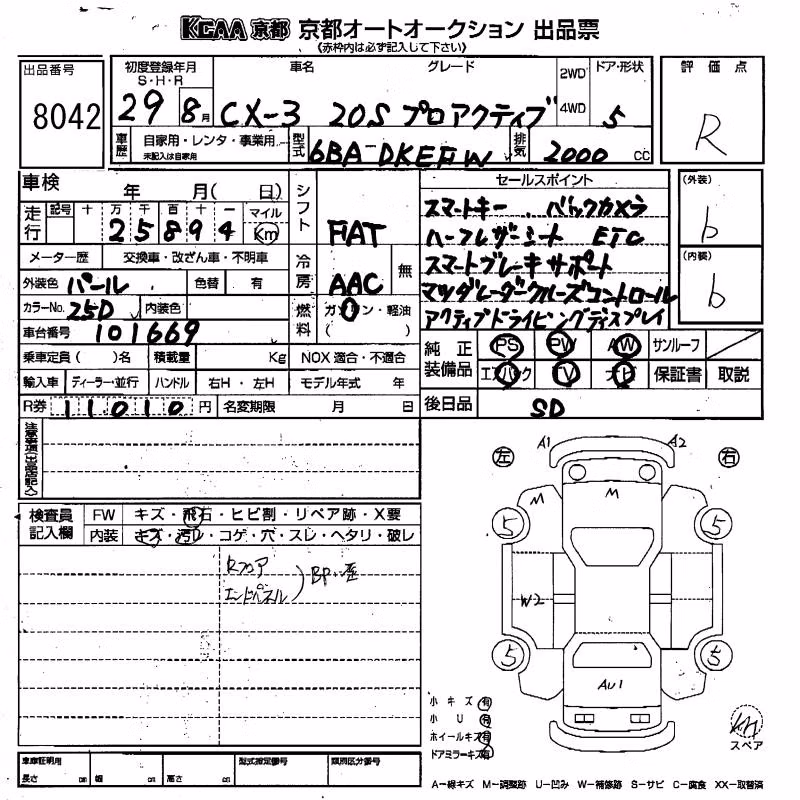 KCAA 京都 京都オートオークション 出品票
《赤枠内は必ず記入して下さい》
出品番号 8042
初度登録年月 S・H・R 29 8月
車名 CX-3
グレード 20S プロアクティブ
2WD 4WD
ドア・形状 5
評価点 R
車歴 自家用・レンタ・事業用 未記入は自家用
型式 6BA-DKEFW
排気 2000 cc
車検 年 月( 日)
走行 記号 十 万 千 百 十 一 マイル Km
25894
メーター歴 交換車・改ざん車・不明車
外装色 パール 色替 有
カラーNo. 25D 内装色
車台番号 101669
乗車定員( )名 積載量 Kg NOX適合・不適合
輸入車 ディーラー・並行 ハンドル 右H・左H モデル年式 年
R券 11010 円 名変期限 月 日
シフト FIAT
冷房 AAC 無
燃料 ガソリン・軽油 ( )
セールスポイント
スマートキー . バックカメラ
ハーフレザーシート ETC
スマートブレーキサポート
マツダレーダークルーズコントロール
アクティブドライビングディスプレイ
(外装) b
(内装) b
純正装備品 PS PW AW サンルーフ
エアバック TV ナビ 保証書 取説
後日品 SD
注意選出品店記入
検査員記入欄 FW キズ・飛石・ヒビ割・リペア跡・X要
内装 キズ・汚レ・コゲ・穴・スレ・ヘタリ・破レ
Rフロア
エンドパネル
左 A1 A2 右
M M
5 5
W2
5 5
AU1
小キズ 有
小U 有
ホイールキズ 有
ドアミラーキズ 有
スペア
車庫証明用 長さ cm 幅 cm 高さ cm
型式指定番号 類別区分番号
A-線キズ M-調整跡 U-凹み W-補修跡 S-サビ C-腐食 XX-取替済